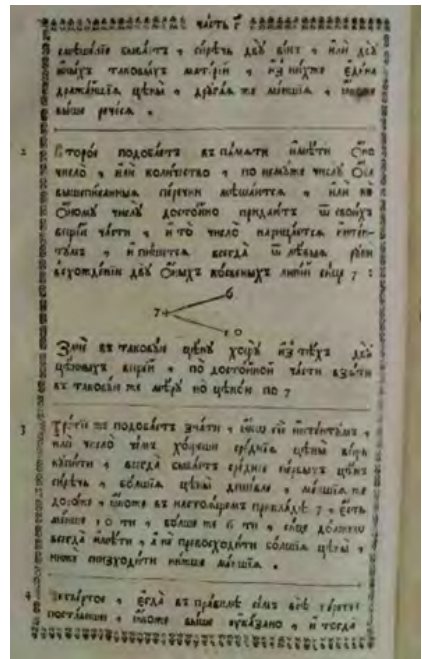 часть г҃
смѣшенїе бываетъ , сирѣчь двꙋ винъ , или двꙋ
иныхъ таковыхъ матерїй , изъ нихже едина
дражайшїя цѣны , дрꙋгая же меншїя , ꙗкоже
выше речеся .
2 Второе подобаетъ въ памяти имѣти оно
число , или количество , по немꙋже числꙋ ѻбѣ
вышеписанныя перечни мѣшаются , или ко
ономꙋ числꙋ достойно придаютъ ѿ своихъ
вещей части , и то число нарицается
и пишется всегда ѿ лѣвыя рꙋки
двꙋ оныхъ косвенныхъ линїй сице 7 :
6
7
10
Зане въ таковꙋю цѣнꙋ хощꙋ изъ тѣхъ двꙋ
цѣновыхъ вещей , по достойной части взѧти
въ таковꙋю же мѣрꙋ но цѣною по 7
3 Третїе же подобаетъ знати , ꙗко сей
или число имъ хощеши среднїя цѣны вещь
кꙋпити , всегда бываетъ среднее первыхъ цѣнъ
сирѣчь , болшїя цѣны дешевле , меншїя же
дороже , ꙗкоже въ настоящемъ прикладѣ 7 , есть
менше 10 ти , болше же 6 ти , сице должно
всегда имѣти , а не превосходити болшїя цѣны ,
ниже низходити нижше меншїя .
4 Четвертое , егда въ правилѣ семъ всѧ
поставиши , ꙗкоже выше ꙋказано , и тогда